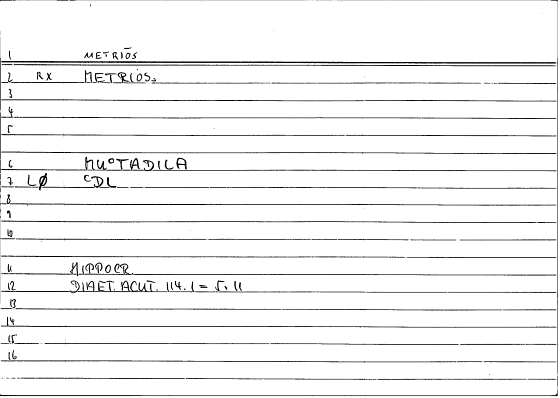 1 METRIŌS
2 RX METRIOS,
3
4
5
6 MUºTADILA
7 LØ ᶜDL
8
9
10
11 HIPPOCR.
12 DIAET. ACUT. 114.1 = 5.11
13
14
15
16